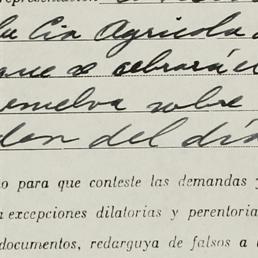 representación
la Cia Agricola
que se cebrará e
suelva sobre
den del dí
o para que conteste las demandas y
n excepciones dilatorias y perentoria
documentos, redarguya de falsos a l